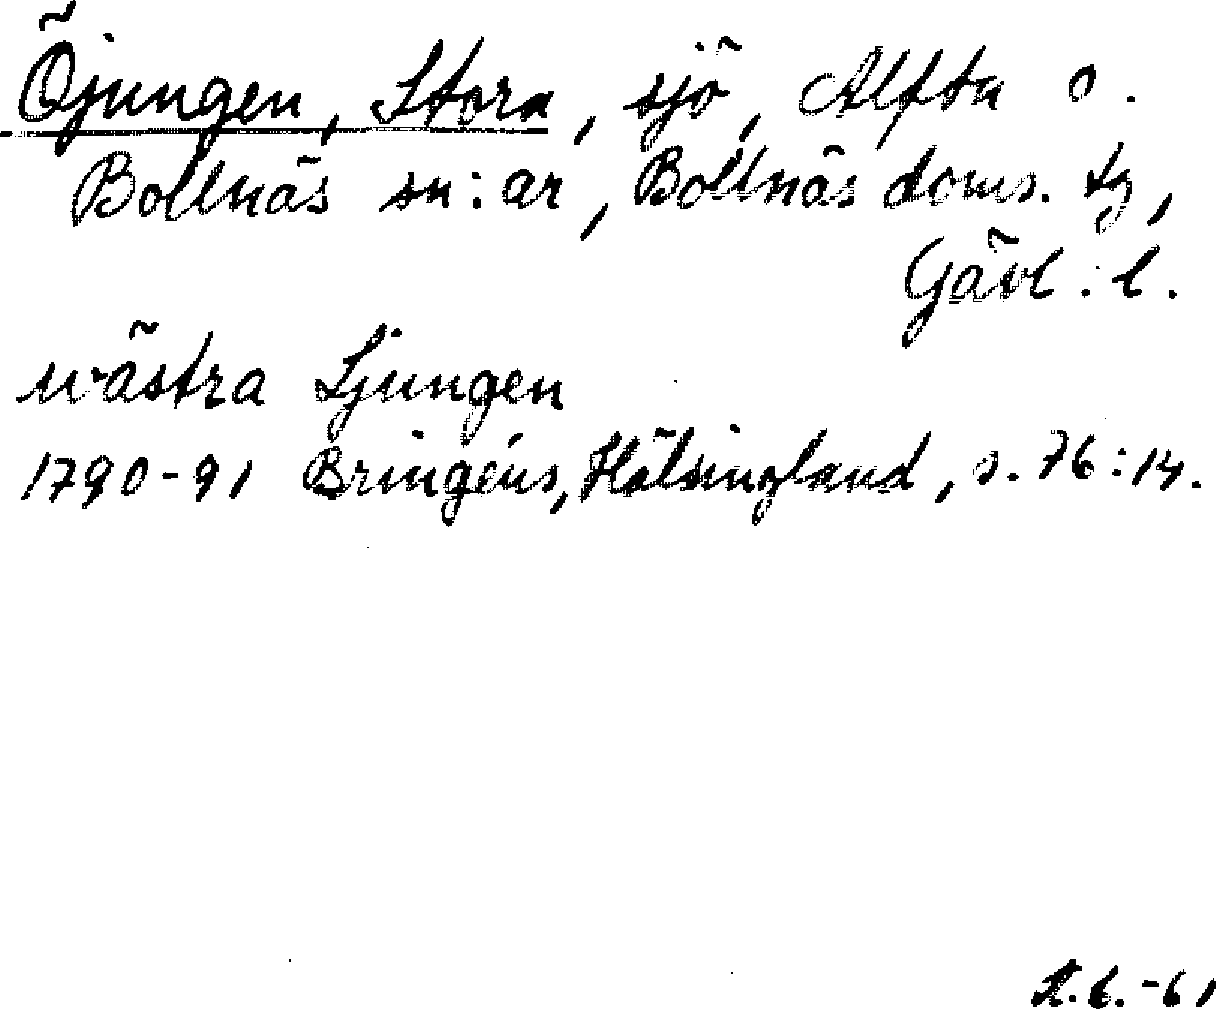 Öjungen, Stora, sjö, Alfta o.
Bollnäs sn:ar, Bollnäs doms. tg,
Gävl. l.
wästra Ljungen
1790-91 Bringéus, Hälsingland, s. 76:14.
L.E.-61